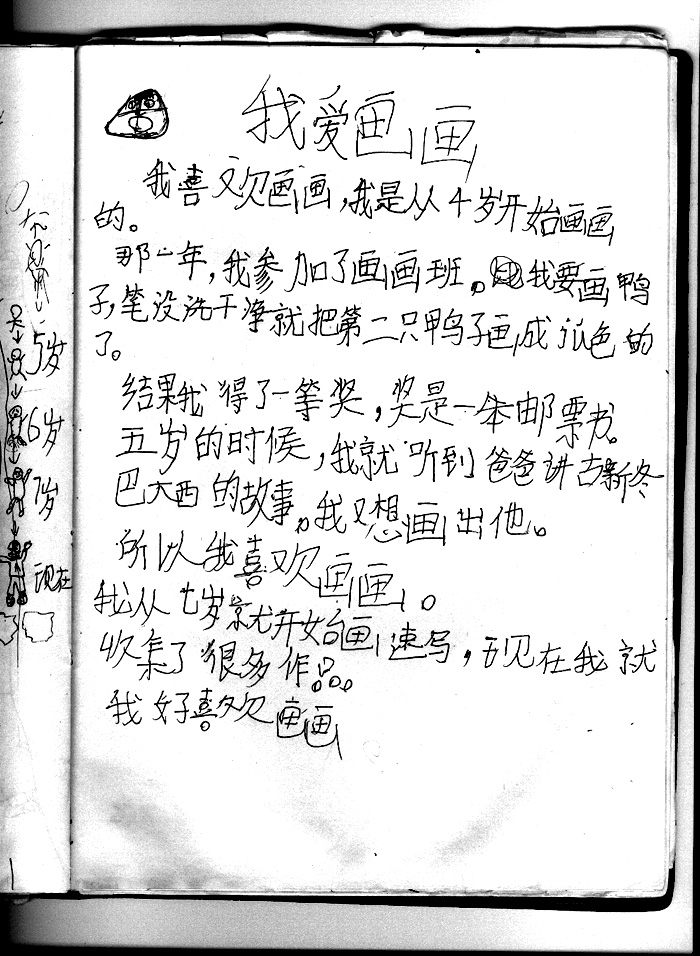 我爱画画
我喜欢画画，我是从4岁开始画画
的。
那一年，我参加了画画班。我要画鸭
子，笔没洗干净就把第二只鸭子画成红色的
了。
结果我得了一等奖，奖是一本邮票书。
五岁的时候，我就听到爸爸讲古新冬
巴大西的故事。我又想画出他。
所以我喜欢画画。
我从七岁就开始画速写，现在我就
收集了很多作品。
我好喜欢画画
5岁
6岁
7岁
现在